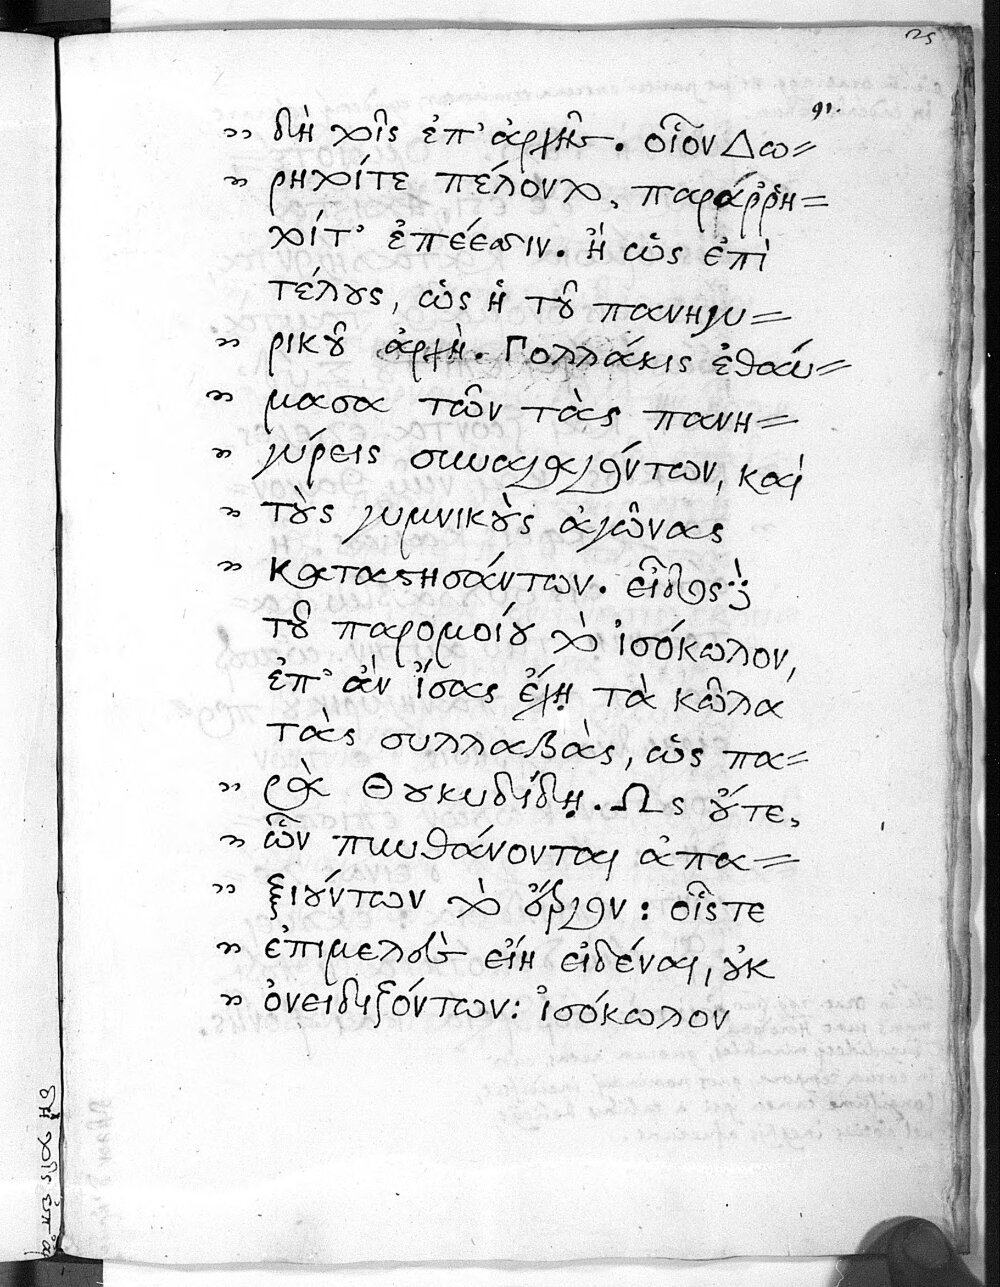 25
91.
δὴ χ̀ῖς ἐπ' ἀρχῆς. οἷον Δω=
ρητοί τε πέλοντο, παράρρη=
τοί τ' ἐπέεσσιν. ἢ ὡς ἐπὶ
τέλους, ὡς ἡ τοῦ πανηγυ=
ρικοῦ ἀρχὴ. Πολλάκις ἐθαύ=
μασα τῶν τὰς πανη=
γύρεις συναγαγόντων, καὶ
τοὺς γυμνικοὺς ἀγῶνας
καταστησάντων. εἶδος δὲ
τοῦ παρομοίου τὸ ἰσόκωλον,
ἐπ' ἀν ἴσας ἔχῃ τὰ κῶλα
τὰς συλλαβὰς, ὡς πα=
ρὰ Θουκυδίδῃ. Ως οὔτε,
ὧν πυνθάνονται ἀπα=
ξιούντων τὸ ἔργον: οἷς τε
ἐπιμελὲς εἴη εἰδέναι, οὐκ
ὀνειδιζόντων: ἰσόκωλον